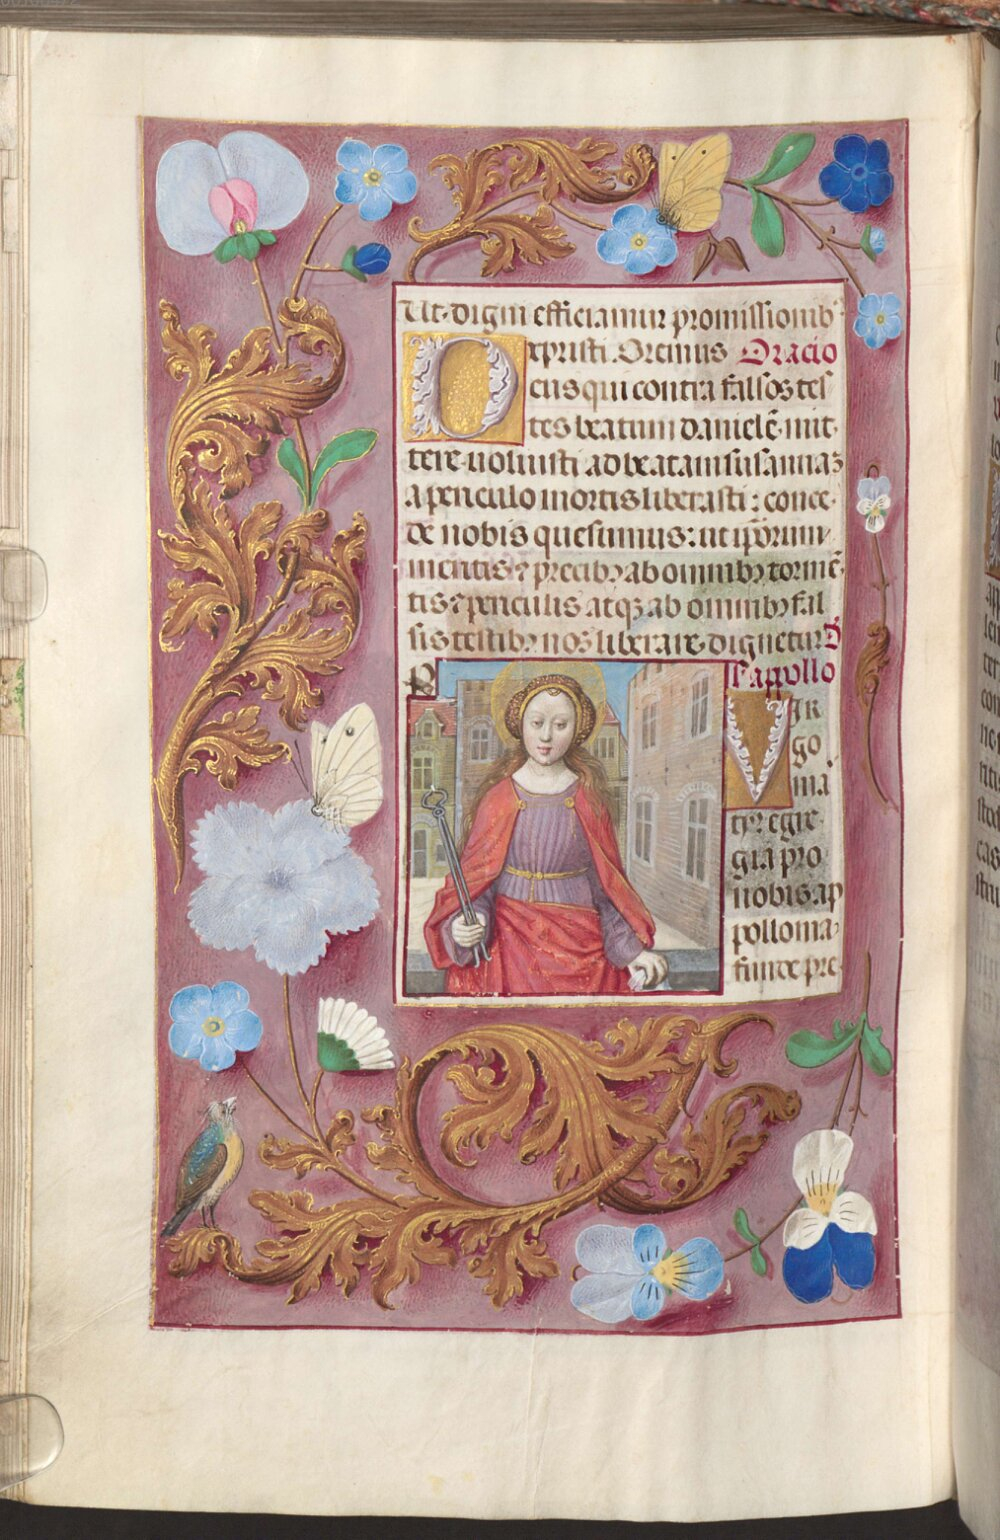 Ut digni efficiamur promissionib⁹
xpristi. Oremus Oracio
Deus qui contra falsos tes
tes beatum daniele̅ mit
tere uoluisti ad beatam susannaʒ
a periculo mortis liberasti: conce
de nobis quesumus: ut ip̅orum
meritis ⁊ precib⁹ ab omnib⁹ torme̅
tis ⁊ periculis atqꝫ ab omnib⁹ fal
sis testib⁹ nos liberare digneturꝰ D
P
s appollo
Vir
go
ma
tyr egre
gia pro
nobis ap
pollonia
funde pre